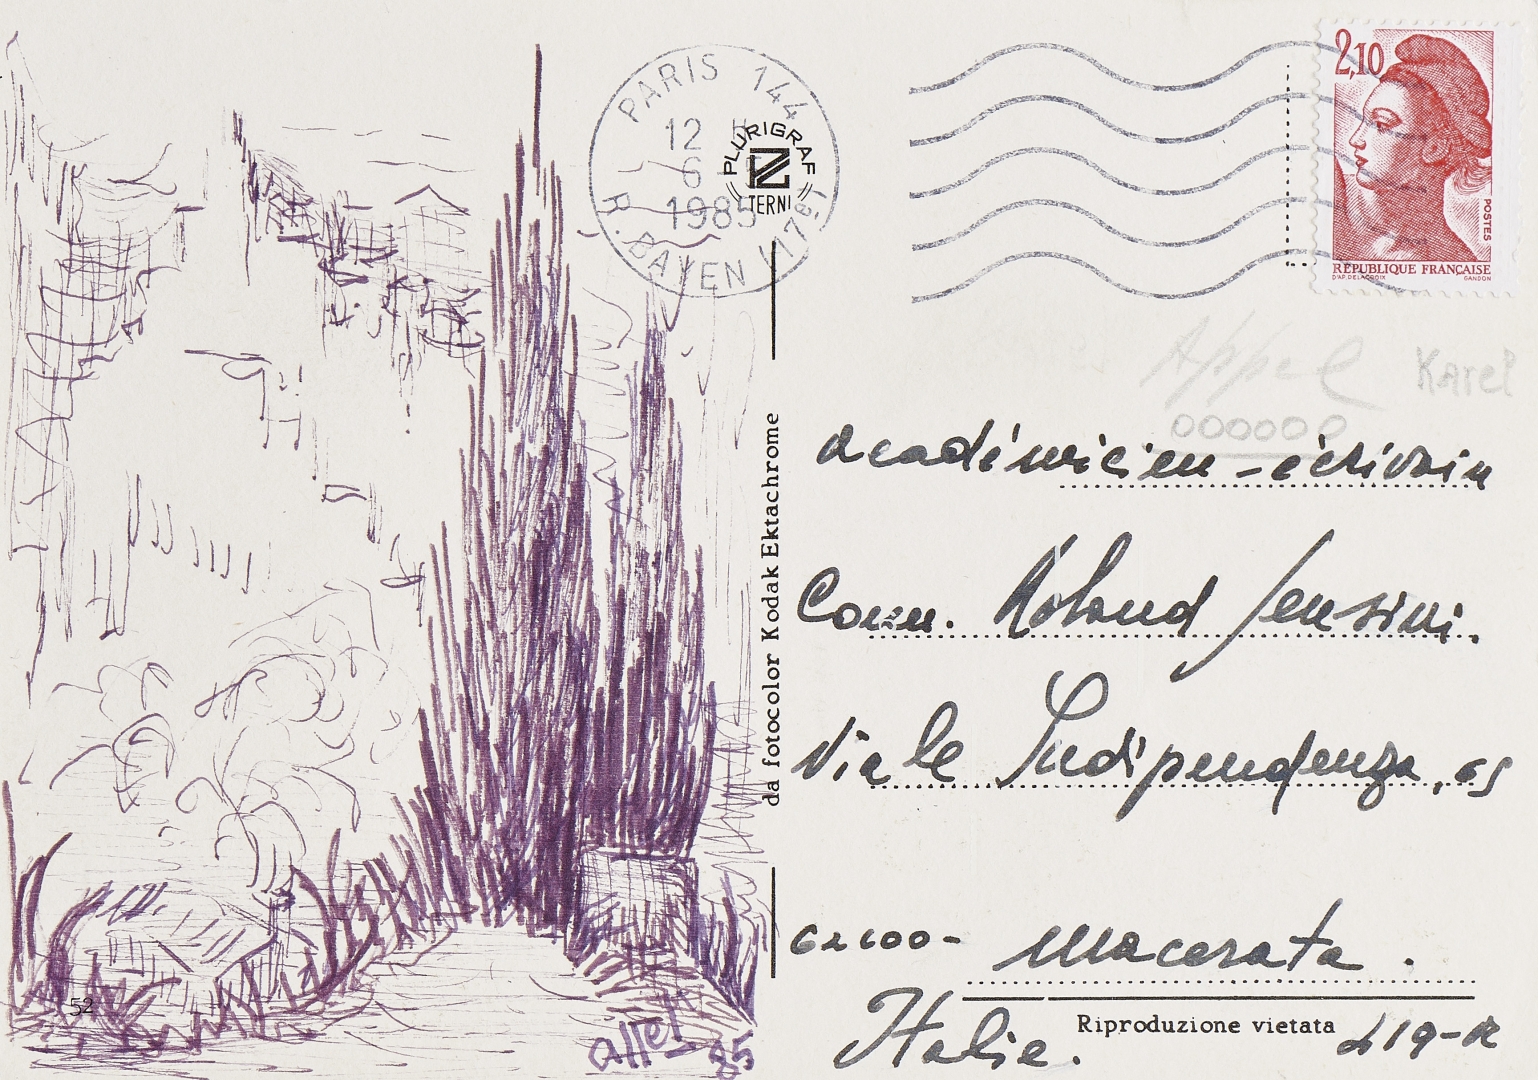 PARIS 144
12 H
6
1985
R. BAYEN (17e)
PLURIGRAF
TERNI
2,10
POSTES
RÉPUBLIQUE FRANÇAISE
D'AP. DELACROIX GANDON
Appel Karel
000000
académicien - écrivain
Comm. Roland Sensini.
Viale Indipendenza,
62100 -
Macerata.
Italie.
Riproduzione vietata
da fotocolor Kodak Ektachrome
52
85